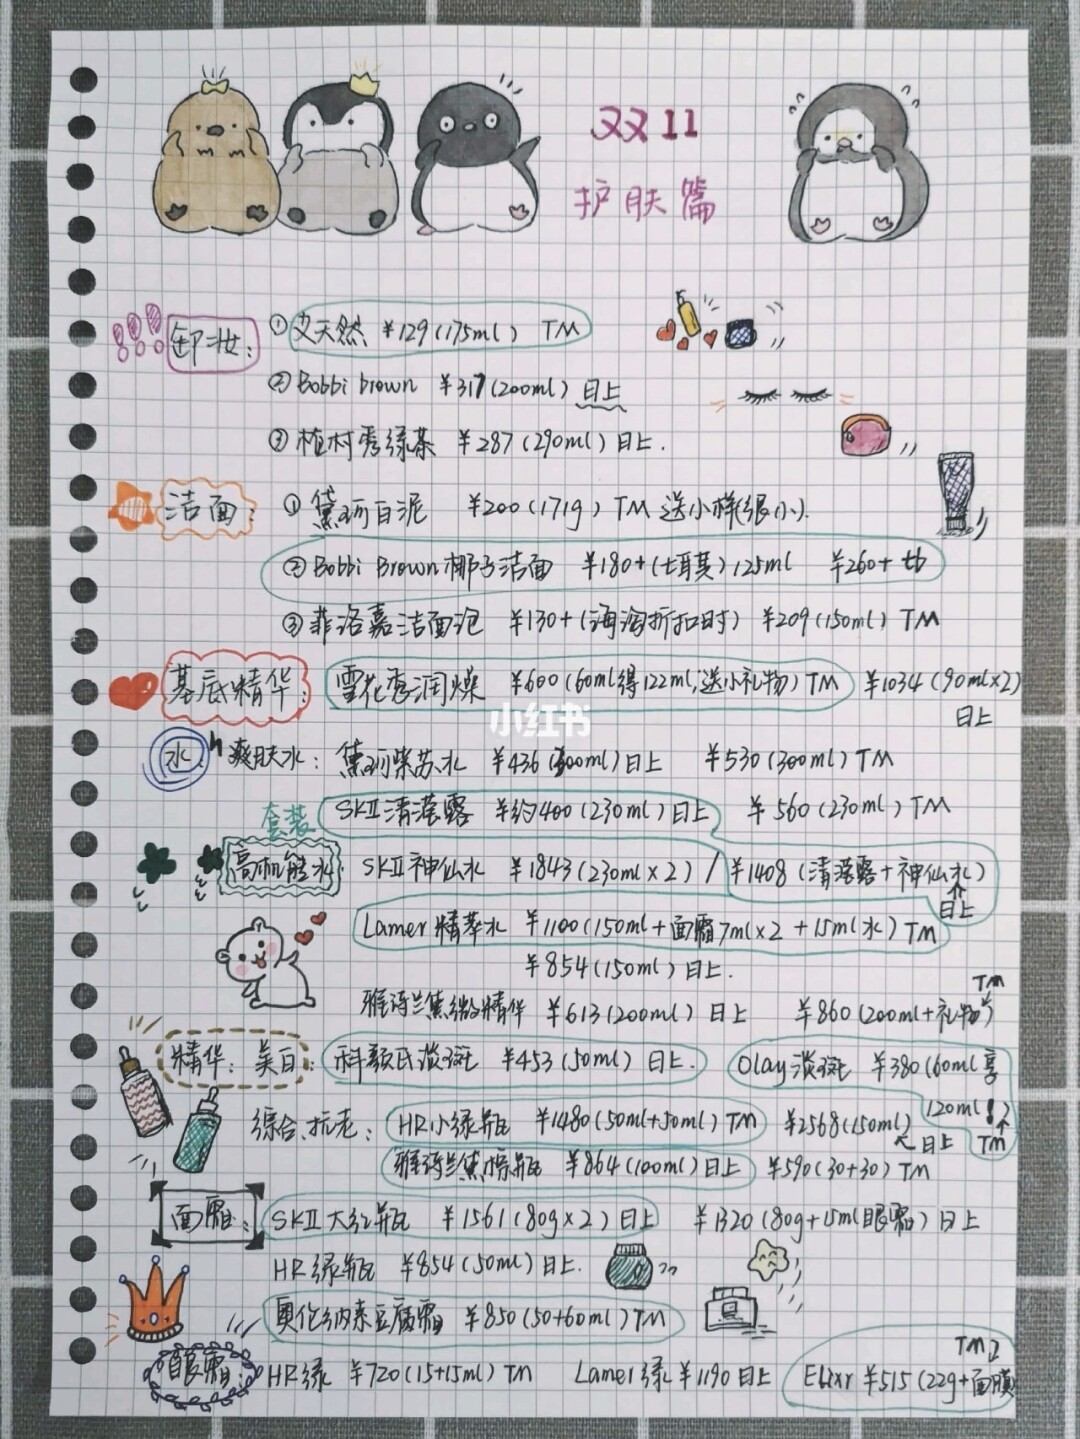 双11
护肤篇
卸妆: ① 艾天然 ¥129(175ml) TM
② Bobbi brown ¥317(200ml) 日上
③ 植村秀绿茶 ¥287(290ml) 日上.
洁面: ① 黛珂白泥 ¥200(171g) TM 送小样(很小).
② Bobbi Brown 椰子洁面 ¥180+(土耳其) 125ml ¥260+ tb
③ 菲洛嘉洁面泡 ¥130+(海淘折扣时) ¥209(150ml) TM
基底精华: 雪花秀润燥 ¥600(60ml得122ml,送小礼物) TM ¥1034(90ml×2)
日上
小红书
水 爽肤水: 黛珂紫苏水 ¥436(300ml)日上 ¥530(300ml) TM
套装 SKII清滢露 ¥约400(230ml)日上 ¥560(230ml) TM
高机能水 SKII神仙水 ¥1843(230ml×2) / ¥1408(清滢露+神仙水)
日上
Lamer精萃水 ¥1100(150ml+面霜7ml×2+15ml水) TM
¥854(150ml)日上.
TM
雅诗兰黛微精华 ¥613(200ml)日上 ¥860(200ml+礼物)
精华: 美白: 科颜氏淡斑 ¥453(50ml) 日上. Olay淡斑 ¥380(60ml享
120ml!)
TM
综合、抗老: HR小绿瓶 ¥1480(50ml+50ml) TM ¥2568(150ml)
日上
雅诗兰黛棕瓶 ¥864(100ml)日上 ¥590(30+30) TM
面霜: SKII大红瓶 ¥1561(80g×2)日上 ¥1320(80g+15ml眼霜)日上
HR绿瓶 ¥854(50ml)日上.
奥伦纳素豆腐霜 ¥850(50+60ml) TM
TM
眼霜: HR绿 ¥720(15+15ml) TM Lamer绿 ¥1190日上 Elixir ¥515(22g+面膜